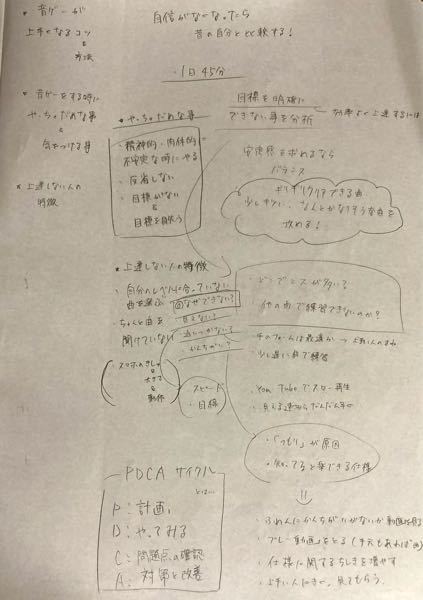 • 音ゲーが
上手くなるコツ
&
方法
自信がなくなったら
昔の自分と比較する!
・1日45分
• 音ゲーをする時に
やっちゃだめな事
&
気をつける事
★ 上達しない人の
特徴
★ やっちゃだめな事
・精神的・肉体的
不安定な時にやる
・反省しない
・目標がない
&
目標を見失う
目標を明確に
できない事を分析
効率よく上達するには
安定感を求めるなら
バランス
ギリギリクリアできる曲
少しキツい、なんとかなりそうな曲を
攻める!
★ 上達しない人の特徴
・自分のレベルに合っていない
曲を選ぶ
・ちゃんと曲を
聞けていない
・スマホの
&
大きさ
&
動作
なぜできない?
見えない?
追いつかない?
かんちがい?
スピード
・目標
・どこでミスが多い?
・他の曲で練習できないのか?
・手のフォームは最適か → 上手い人のまね
・少し遅い曲で練習
・You Tubeでスロー再生
・見える速さからだんだん
・「つもり」が原因
・知ってると楽できる仕様
・ふめんにかんちがいがないか動画を見る
・プレー動画をとる(手元もあれば)
・仕様に関するちしきを増やす
・上手い人にきく、見てもらう。
PDCA サイクル
とは…
P:計画
D:やってみる
C:問題点の確認
A:対策と改善